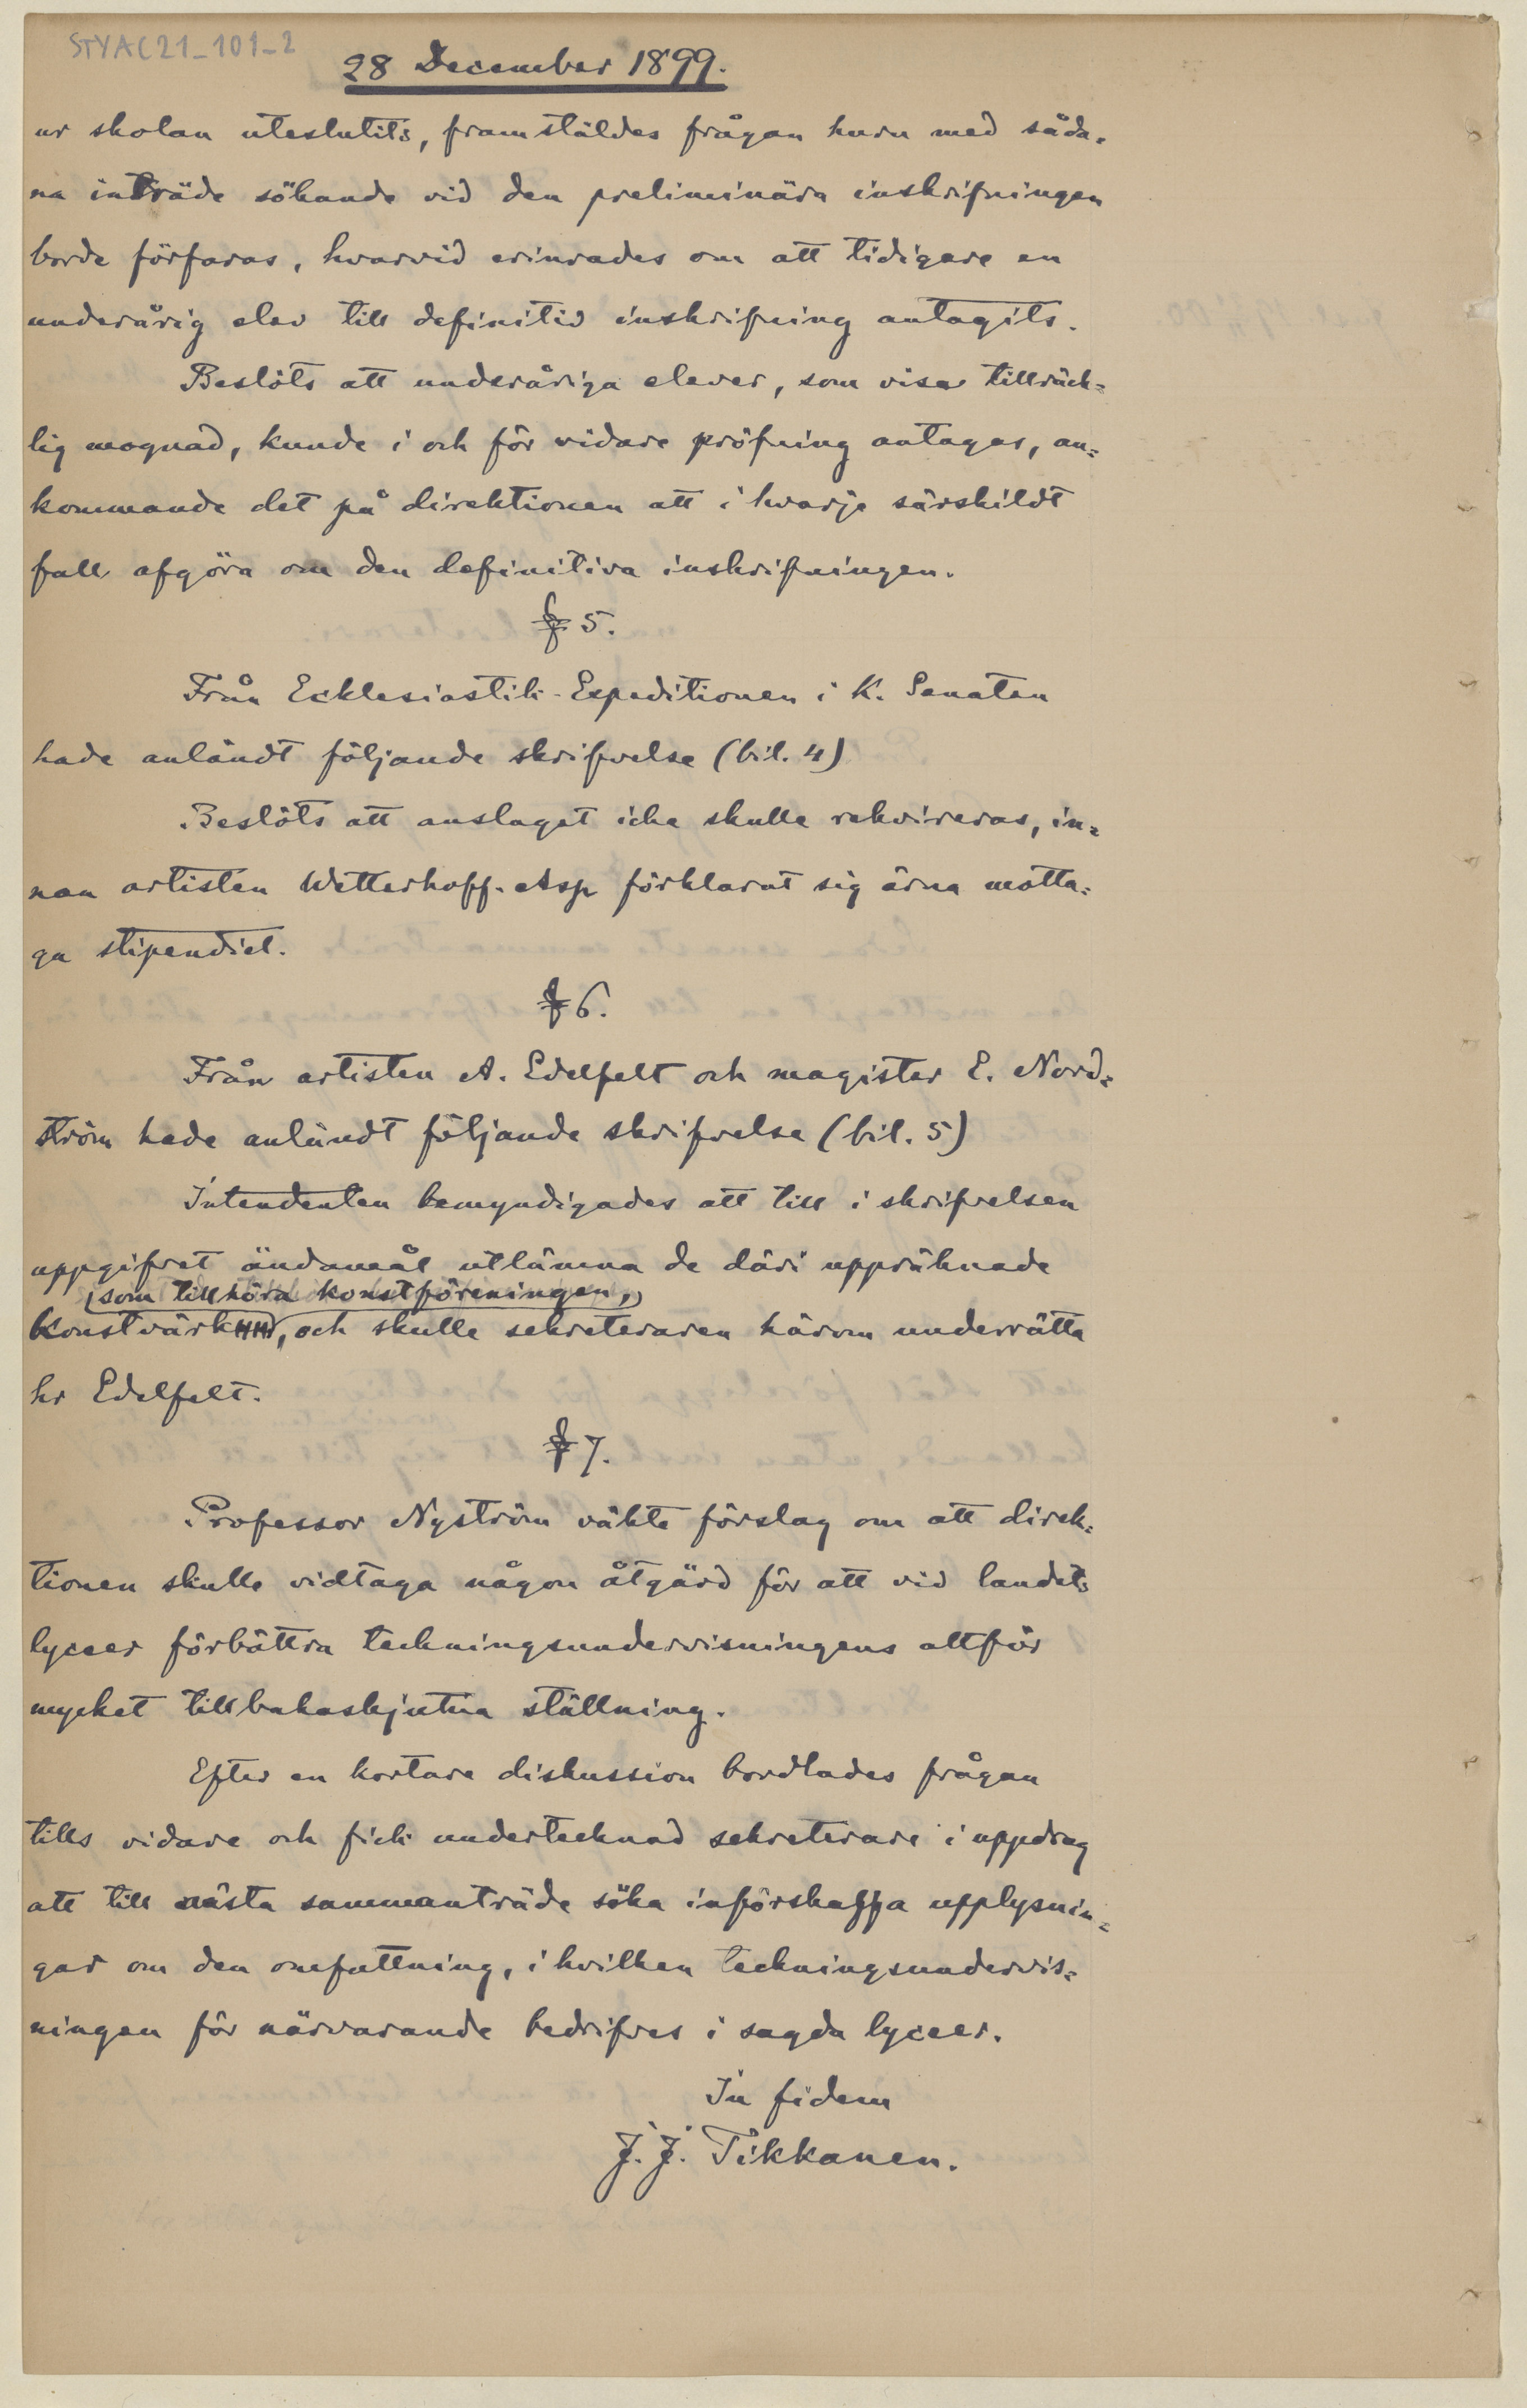 STYAC21_101_2
28 December 1899.
ur skolan uteslutits, framstäldes frågan huru med såda-
na inträde sökande vid den preliminära inskrifningen
borde förfaras, hvarvid erinrades om att tidigare en
underårig elev till definitiv inskrifning antagits.
Beslöts att underåriga elever, som visa tillräck-
lig mognad, kunde i och för vidare pröfning antagas, an-
kommande det på direktionen att i hvarje särskildt
fall afgöra om den definitiva inskrifningen.
§ 5.
Från Ecklesiastik-Expeditionen i K. Senaten
hade anländt följande skrifvelse (bil. 4)
Beslöts att anslaget icke skulle rekvireras, in-
nan artisten Wetterhoff-Asp förklarat sig ärna motta-
ga stipendiet.
§ 6.
Från artisten A. Edelfelt och magister E. Nord-
ström hade anländt följande skrifvelse (bil. 5)
Intendenten bemyndigades att till i skrifvelsen
uppgifvet ändamål utlämna de däri uppräknade
(som tillhöra konstföreningen,)
konstvärk, och skulle sekreteraren härom underrätta
hr Edelfelt.
§ 7.
Professor Nyström väkte förslag om att direk-
tionen skulle vidtaga någon åtgärd för att vid landets
lyceer förbättra teckningsundervisningens alltför
mycket tillbakaskjutna ställning.
Efter en kortare diskussion bordlades frågan
tills vidare och fick undertecknad sekreterare i uppdrag
att till nästa sammanträde söka införskaffa upplysnin-
gar om den omfattning, i hvilken teckningsundervis-
ningen för närvarande bedrifves i sagda lyceer.
In fidem
J. J. Tikkanen.